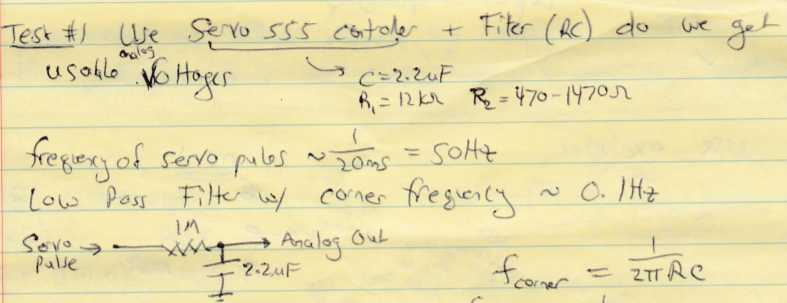 Test #1 Use Servo 555 contoler + Filter (RC) do we get
usable analog Voltages → C=2.2uF
R₁=12kΩ R₂=470-1470Ω
frequency of servo pules ~ 1/20ms = 50Hz
Low Pass Filter w/ corner frequency ~ 0.1Hz
1M
Servo → Analog Out
Pulse 2.2uF f corner = 1/2πRC